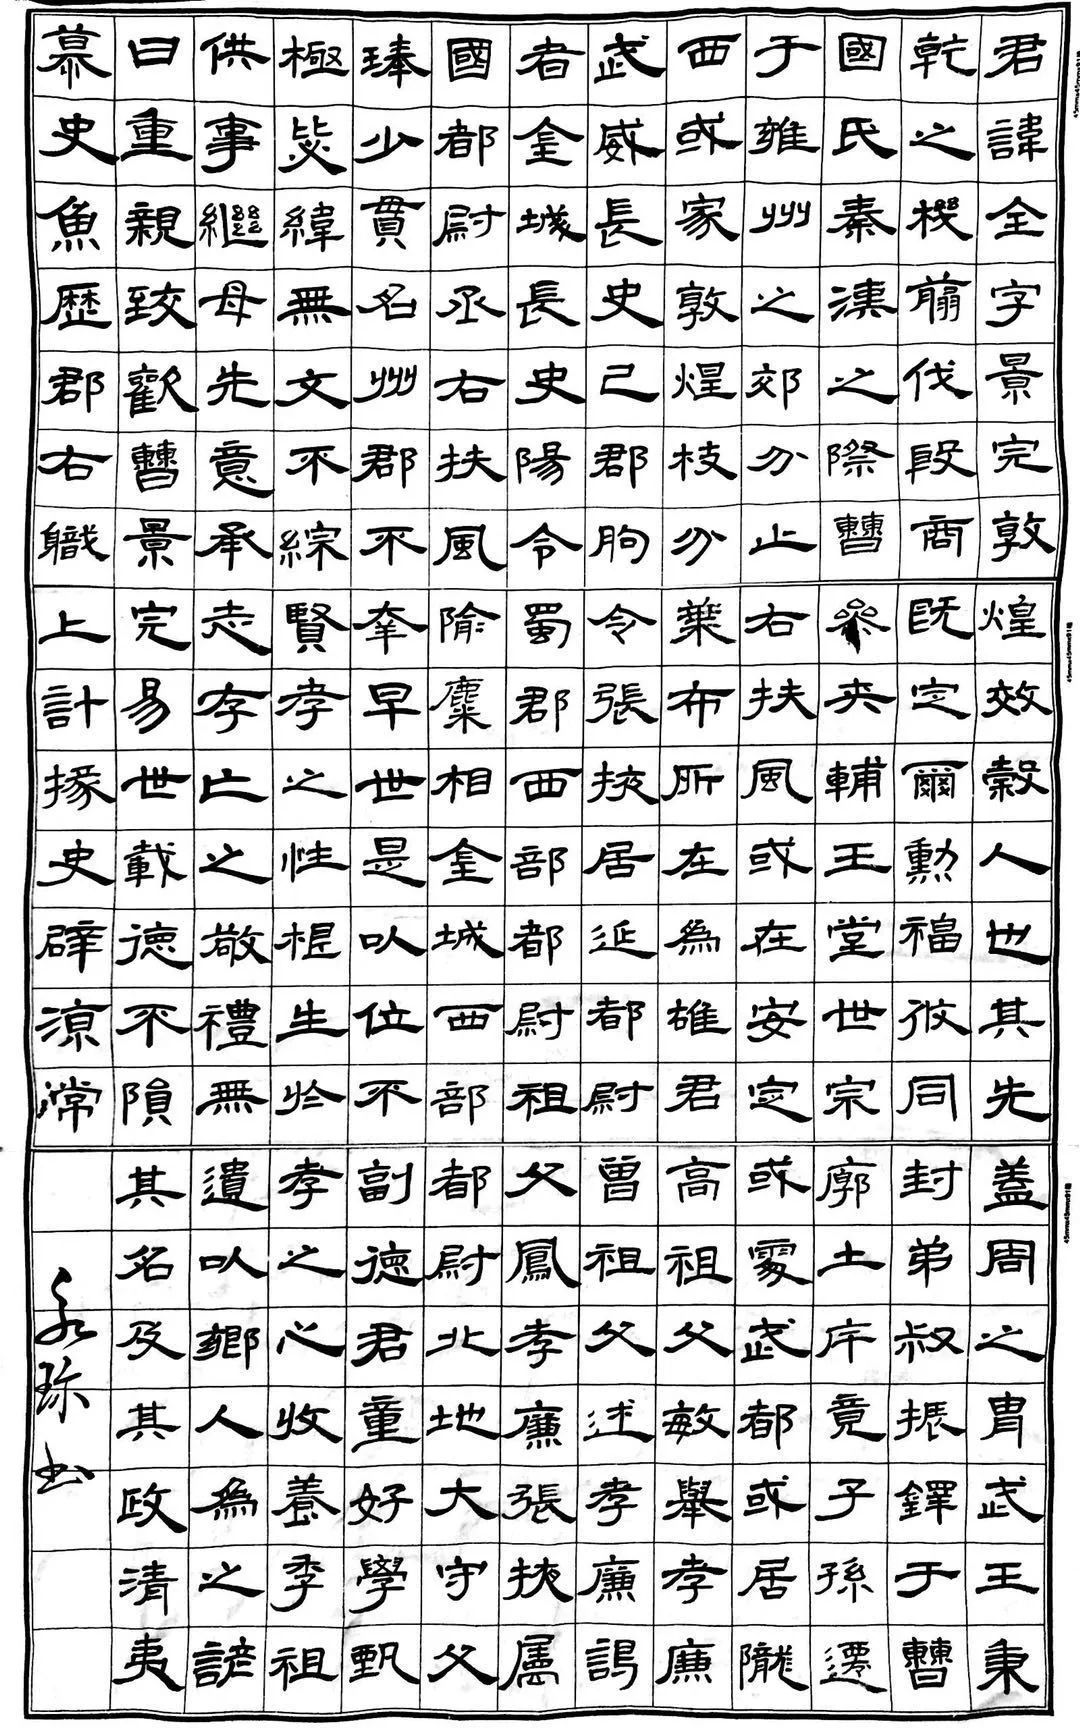 君諱全字景完敦煌效穀人也其先蓋周之胄武王秉
乾之機翦伐殷商既定爾勳福攸同封弟叔振鐸于曹
國氏秦漢之際曹參夾輔王室世宗廓土斥竟子孫遷
于雍州之郊分止右扶風或在安定或處武都或居隴
西或家敦煌枝分葉布所在為雄君高祖父敏舉孝廉
武威長史巳郡朐令張掖居延都尉曾祖父述孝廉謁
者金城長史陽令蜀郡西部都尉祖父鳳孝廉張掖屬
國都尉丞右扶風隃麋相金城西部都尉北地大守父
琫少貫名州郡不幸早世是以位不副德君童好學甄
極毖緯無文不綜賢孝之性根生於孝之心收養季祖
供事繼母先意承志存亡之敬禮無遺以鄉人為之諺
曰重親致歡曹景完易世載德不隕其名及其政清夷
慕史魚歷郡右職上計掾史辟涼常
永珎书